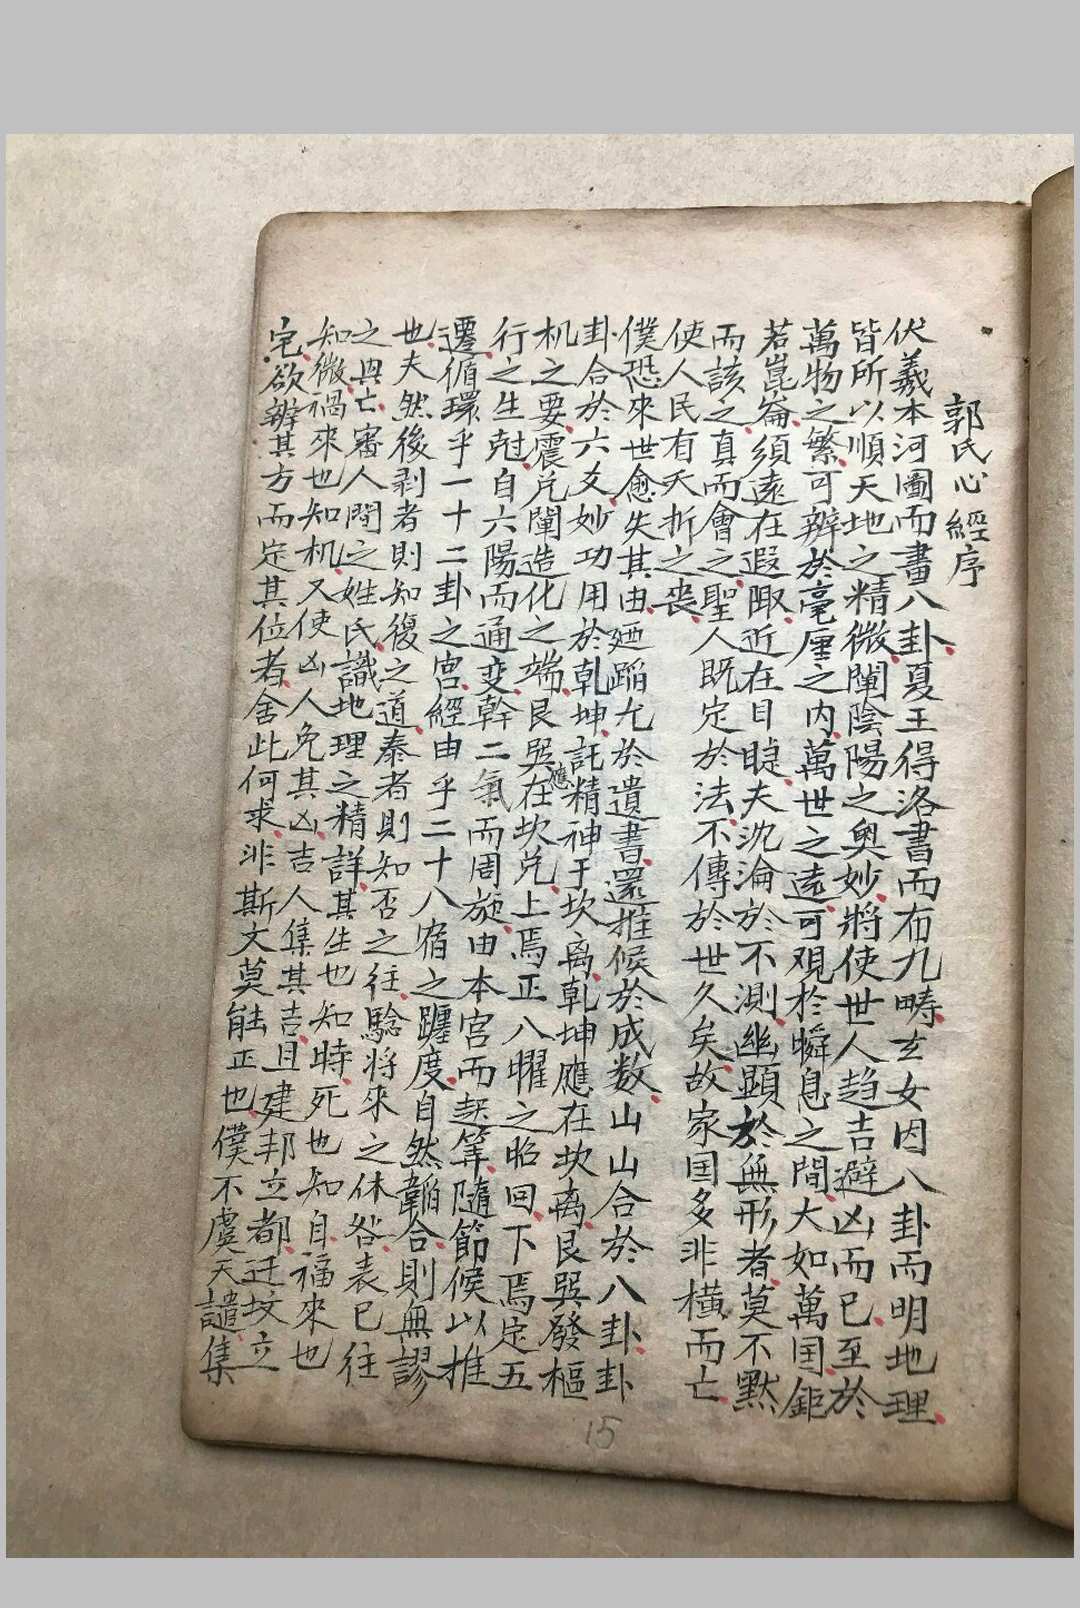 郭氏心經序
伏羲本河圖而畫八卦夏王得洛書而布九畴玄女因八卦而明地理
皆所以順天地之精微闡陰陽之奥妙將使世人趋吉避凶而已至於
萬物之繁可辨於毫厘之内萬世之遠可观於瞬息之間大如萬国鉅
若崑崙須遠在遐陬近在目睫夫沉淪於不測幽顕於無形者莫不黙
而該之真而會之聖人既定於法不傳於世久矣故家国多非横而亡
使人民有夭折之丧
僕恐來世愈失其由廼蹈尤於遺書還推候於成数山山合於八卦卦
卦合於六爻妙功用於乹坤託精神于坎离乹坤應在坎离艮巽發樞
机之要震兑闡造化之端艮巽應在坎兑上焉正八曜之昭回下焉定五
行之生尅自六陽而通变幹二氣而周施由本宫而起筭隨節候以推
遷循環乎一十二卦之宫經由乎二十八宿之躔度自然韜合則無謬
也夫然後剥者則知復之道泰者則知否之往騐將來之休咎表已往
之興亡審人間之姓氏識地理之精詳其生也知時死也知自福来也
知微禍来也知机又使凶人免其凶吉人集其吉且建邦立都迁坟立
宅欲辨其方而定其位者舍此何求非斯文莫能正也僕不虞天譴集
15